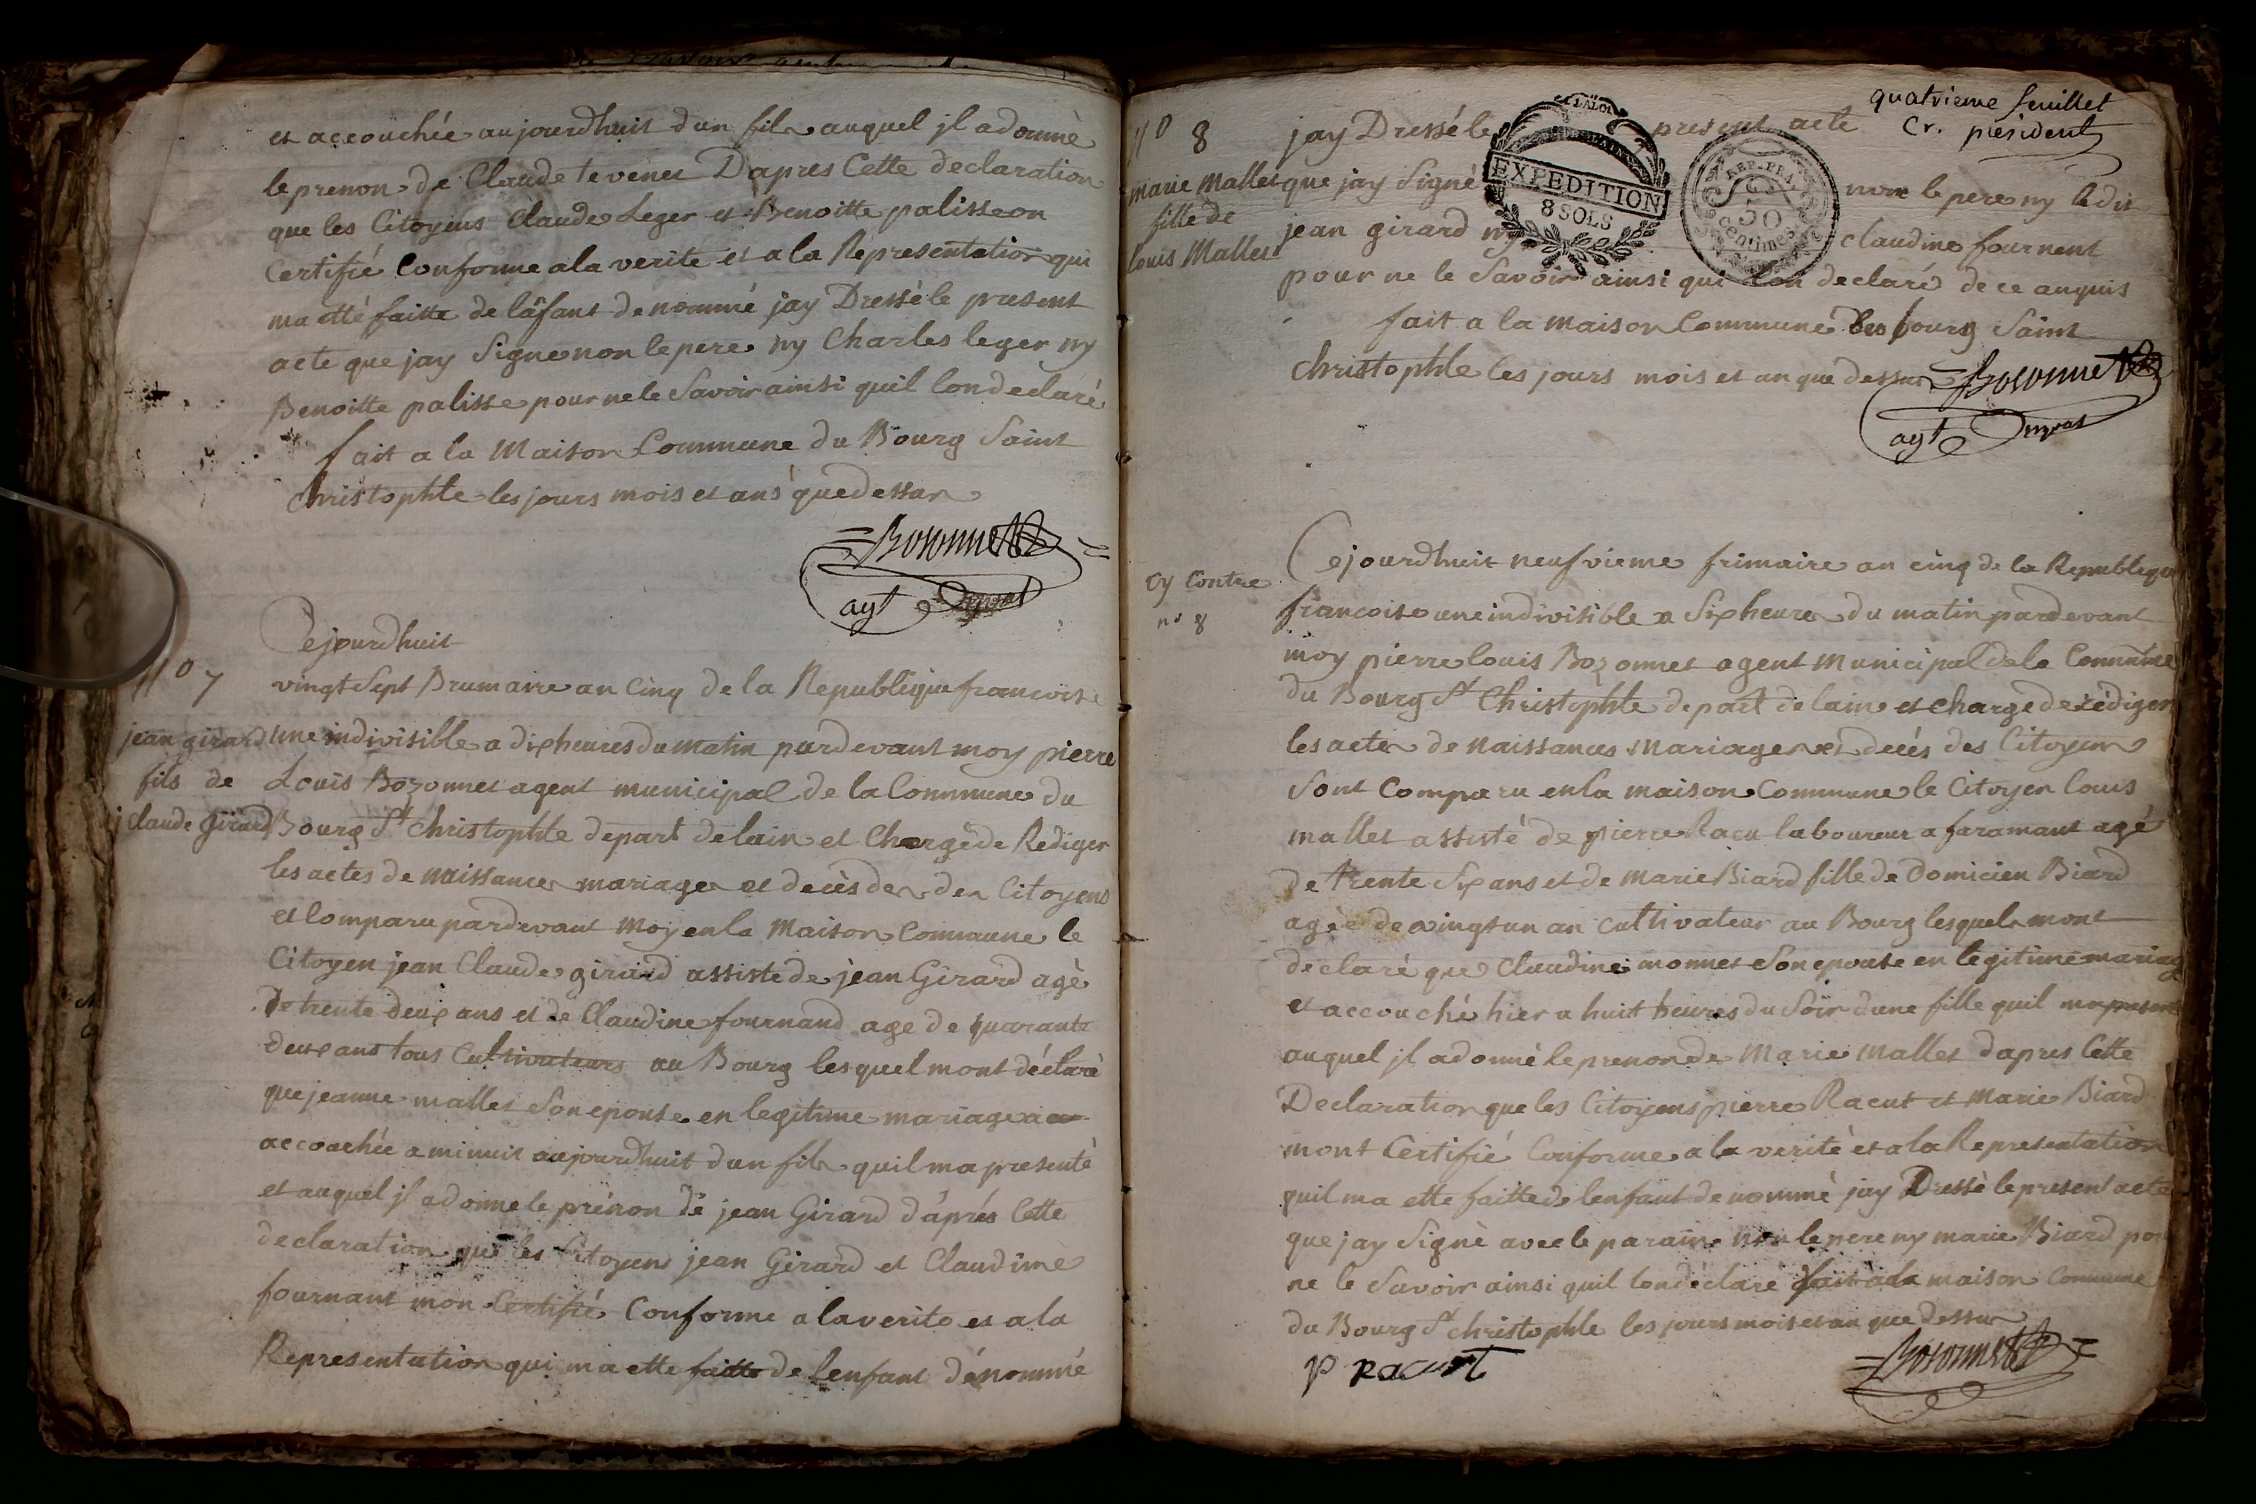 et accouchée aujourdhuit dun fils auquel jl adonnè
le prenon de Claude tevenet Dapres Cette declaration
que les Citoyens Claude Leger et Benoitte palisse on
Certifié Conforme ala verite et ala Representation qui
ma etté faitte de lâfant denommé jay Dressè le present
acte que jay Signe non le pere ny Charles leger ny
Benoitte palisse pour ne le Savoir ainsi quil londeclaré
fait a la Maison Commune du Bourg Saint
christophle les jours mois et ans que dessus
Bozonnet
agt
Cejourdhuit
No 7
vingt Sept Brumaire an Cinq de la Republique francoise
jean girard
fils de
j claude girard
une indivisible a dix heures du matin pardevant moy pierre
Louis Bozonnet agent municipal de la Commune du
Bourg St christophle depart delain et Chargé de Rediger
les actes de naissances mariages et decès des des Citoyens
et Comparu pardevant moy en la Maison Commune le
Citoyen jean Claude girard assiste de jean Girard agè
de trente deux ans et de Claudine fournand age de quarante
deux ans tous Cultivateurs au Bourg lesquel mont déclarè
que jeanne mallet Son epouse en legitime mariage a
accouchée a minuit aujourdhuit dun fils quil ma presentè
et auquel jl adonne le prénon de jean Girard d'áprés Cette
declaration que les Citoyens jean Girard et Claudine
fournant mon Certifié Conforme a la verite et a la
Representation qui ma ette faitte de Lenfant dénommé
quatrieme feuillet
Cr. president
No 8
marie Mallet
fille de
louis Mallet
jay Dressé le present acte
que jay Signé non le pere ny ledit
jean girard ny claudine fournent
pour ne le Savoir ainsi qui lon declaré de ce anquis
fait a la maison Commune du bourg Saint
christophle les jours mois et an que dessus
Bozonnet
agt
LA LOI
EXPEDITION
8 SOLS
REP. FRA.
50
centimes
Cy Contre
no 8
Cejourdhuit neufvieme frimaire an cinq de la Republique
francoise une indivisible a Six heures du matin pardevant
moy pierre louis Bozonnet agent municipal de la Commune
du Bourg St Christophle depart de lain et chargé de rédiger
les actes de Naissances mariages et decés des Citoyens
Sont Comparu en la maison Commune le Citoyen louis
mallet assisté de pierre Racu laboureur a faramant agé
de trente Six ans et de marie Biard fille de Domicien Biard
agée de vingt un an Cultivateur au Bourg lesquels mont
declaré que Claudine monnet Son epouse en legitime mariag
et accouché hier a huit heures du Soir dune fille quil ma presenté
auquel jl adonné le prenon de Marie Mallet dapres Cette
Declaration que les Citoyens pierre Racut et Marie Biard
mont Certifié Conforme a la verité et a la Representation
quil ma ette faitte de lenfant denommé jay Dressè le present acte
que jay Signè avec le parain non le pere ny marie Biard pour
ne le Savoir ainsi quil londéclaré fait a la maison Commune
du Bourg St christophle les jours mois et an que dessus
P RACUT
Bozonnet